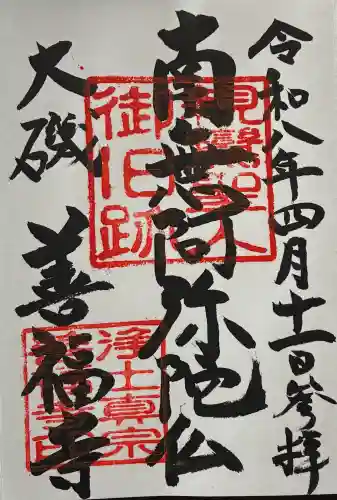 令和八年四月十一日参拝
南無阿弥陀仏
大磯
善福寺
御旧跡
浄土真宗